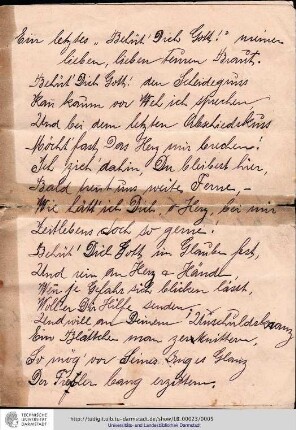 Ein letztes „Behüt' Dich Gott!" meiner
lieben, lieben teuren Braut.
Behüt' Dich Gott! den Scheidegruss
Kan kaum vor Weh ich sprechen
Und bei dem letzten Abschiedskuss
Möcht fast Das Herz mir brechen!
Ich zieh' dahin, Du bleibest hier,
Bald trent uns weite Ferne, –
Wie hätt ich Dich, o Herz, bei mir
Zeitlebens doch so gerne!
Behüt' Dich Gott, im Glauben fest,
Und rein an Herz & Hände,
Wen je Gefahr sich blicken lässt,
Woll' Er Dir Hilfe senden
Und will an Deinem Unschuldskranz
Ein Blättchen man zerknittern,
So mög' vor Seines Auges Glanz
Der Frevler bang erzittern.
TECHNISCHE
UNIVERSITÄT
DARMSTADT
http://tudigit.ulb.tu-darmstadt.de/show/LB_00023/0006
Universitäts- und Landesbibliothek Darmstadt